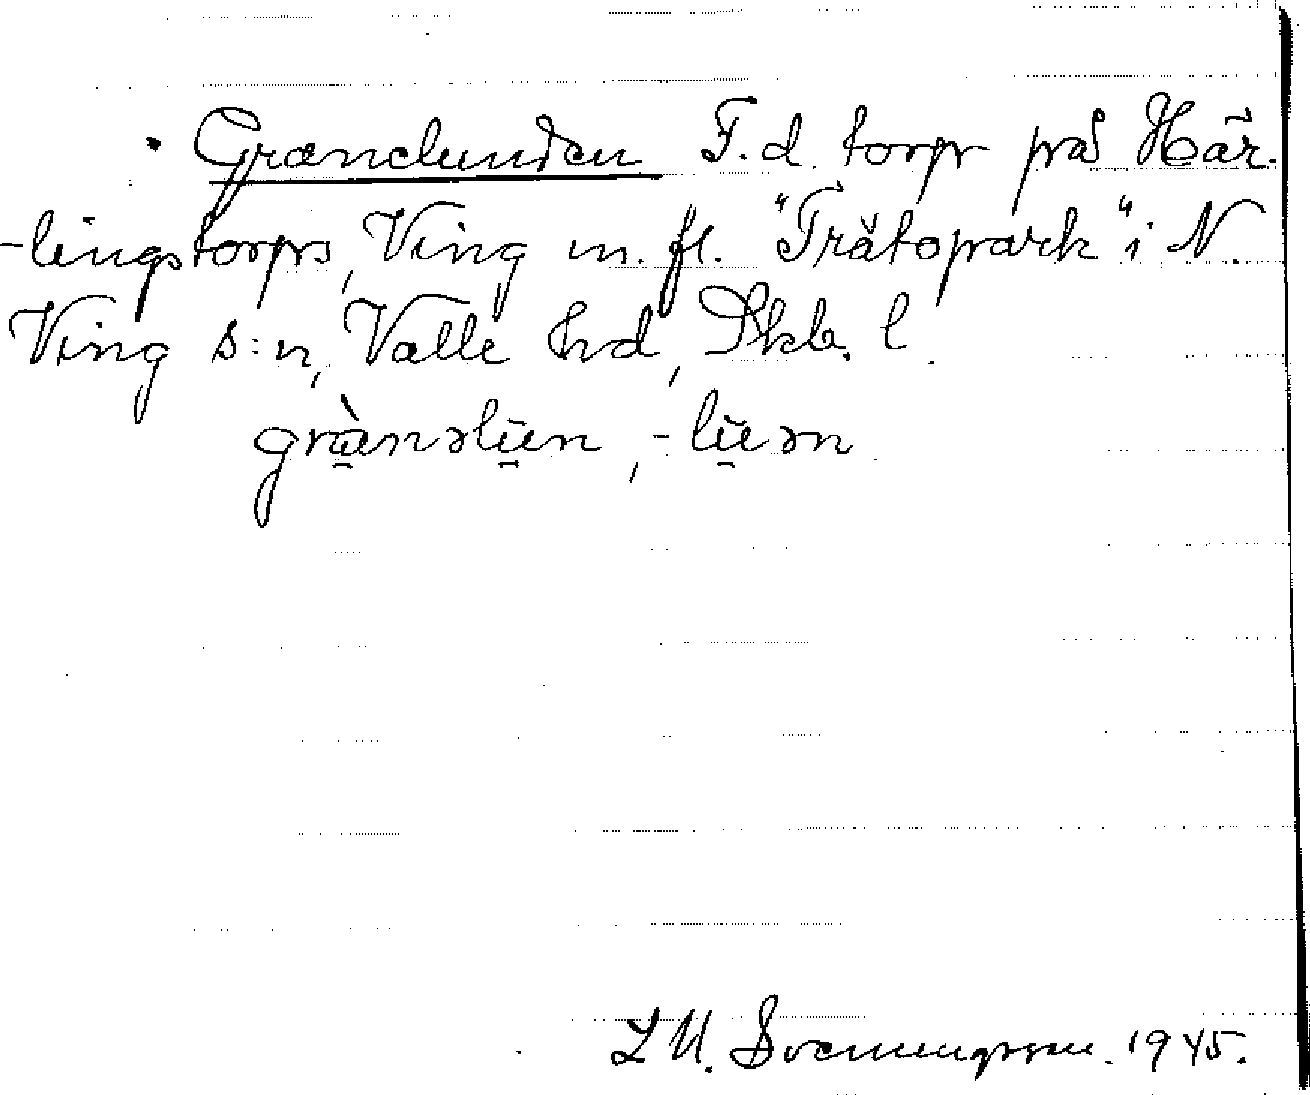 Granelunden F.d. torp på Här-
-lingstorps, Ving m. fl. "Trätopark" i N.
Ving s:n, Valle hd, Skb. l.
grànəlūn, -lūən
L M. Svenungsson. 1945.